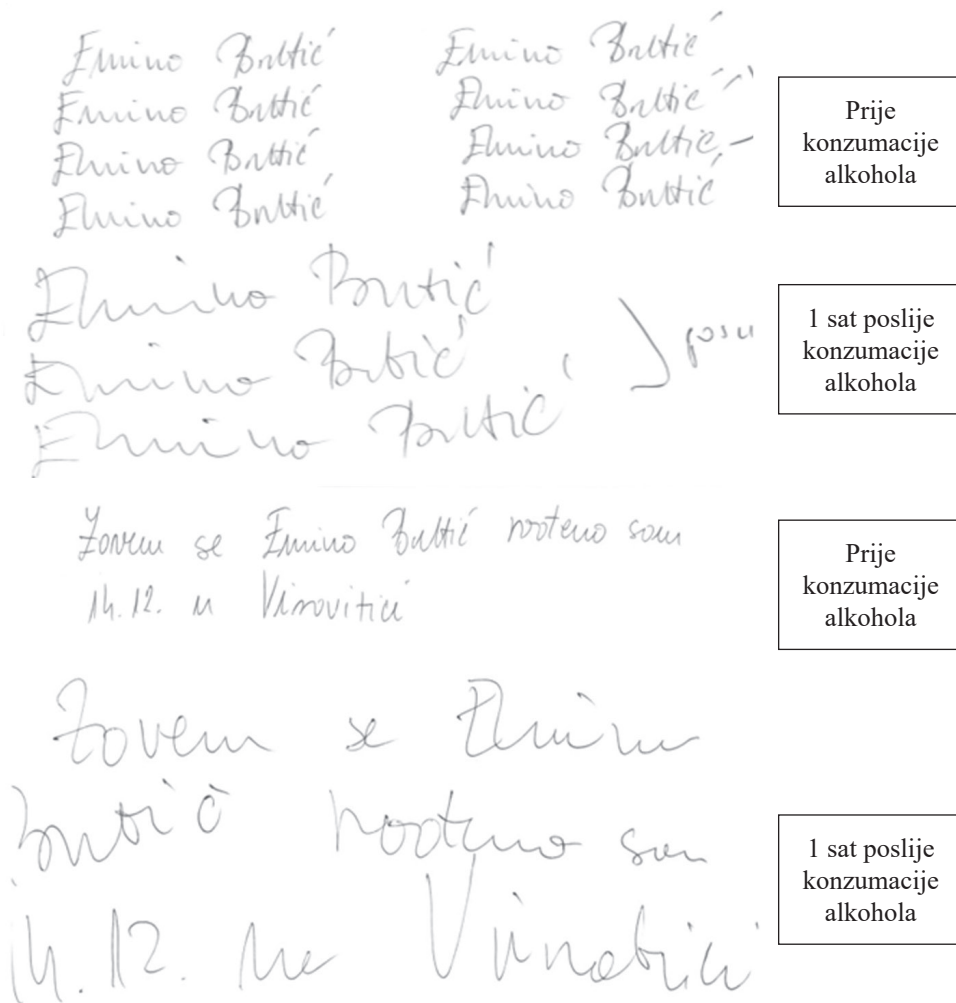 Emina Bultić Emina Bultić
Emina Bultić Emina Bultić
Emina Bultić Emina Bultić
Emina Bultić Emina Bultić
Prije
konzumacije
alkohola
Emina Bultić
Emina Bultić
Emina Bultić
1 sat poslije
konzumacije
alkohola
Zovem se Emina Bultić rođena sam
14.12. u Virovitici
Prije
konzumacije
alkohola
Zovem se Emina
rođena sam
14.12. u
1 sat poslije
konzumacije
alkohola